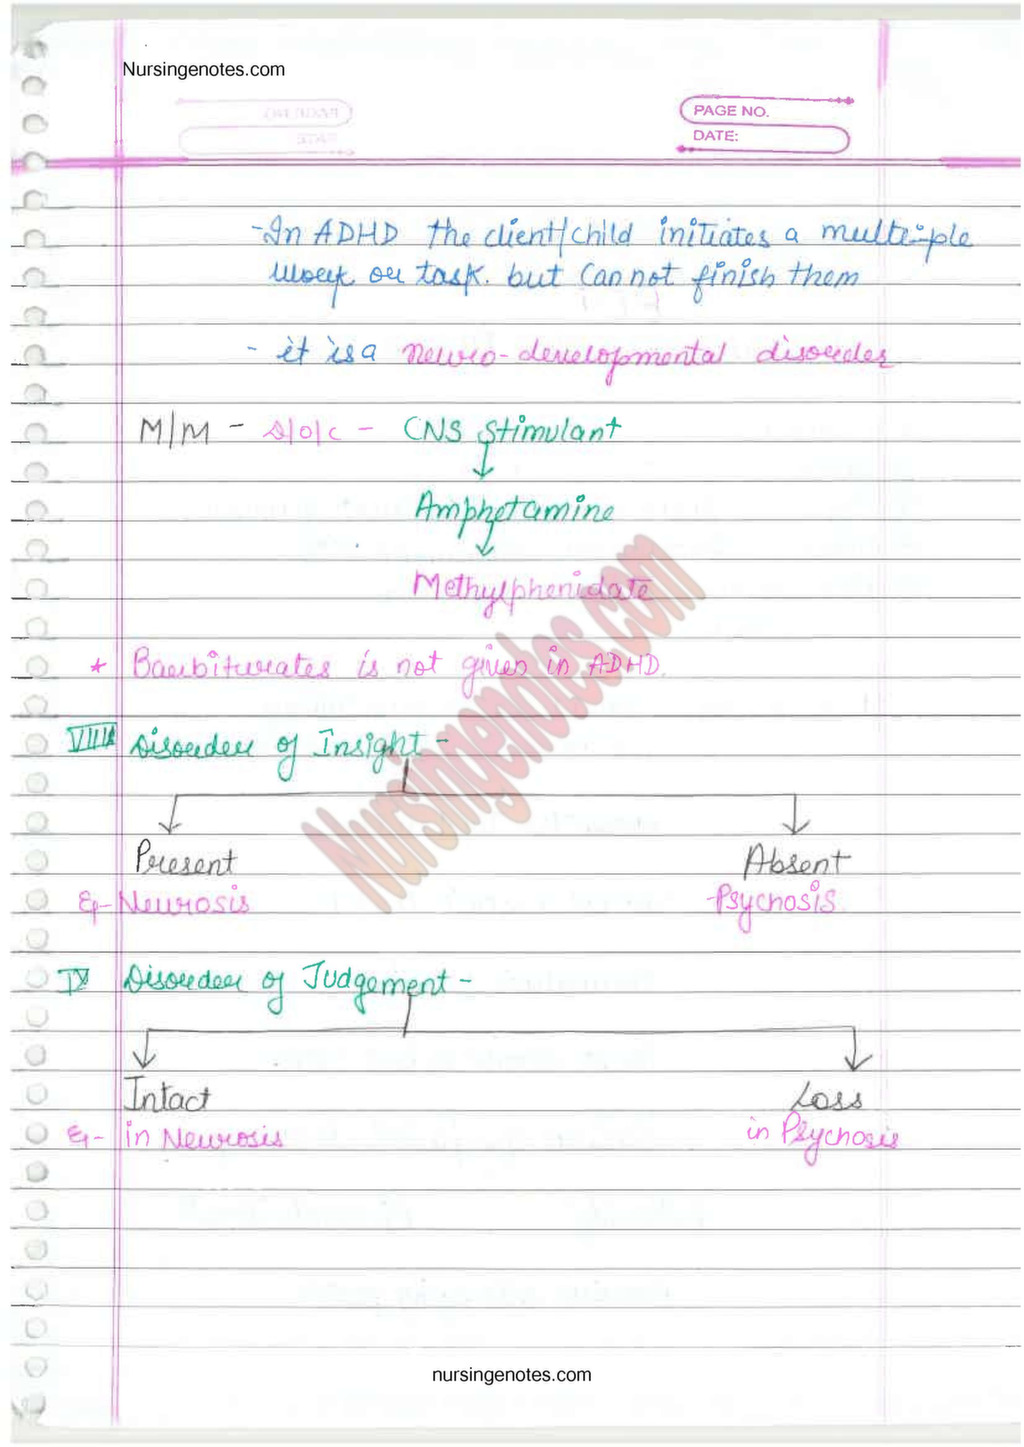 Nursingenotes.com
PAGE NO.
DATE:
- In ADHD the client/child initiates a multiple
work or task. but cannot finish them
- it is a neuro-developmental disorder
M/M - D/O/C - CNS Stimulant
Amphetamine
Methylphenidate
* Barbiturates is not given in ADHD.
VIII Disorder of Insight -
Present Absent
Eg- Neurosis -Psychosis
IX Disorder of Judgement -
Intact Loss
Eg- in Neurosis in Psychosis
Nursingenotes.com
nursingenotes.com